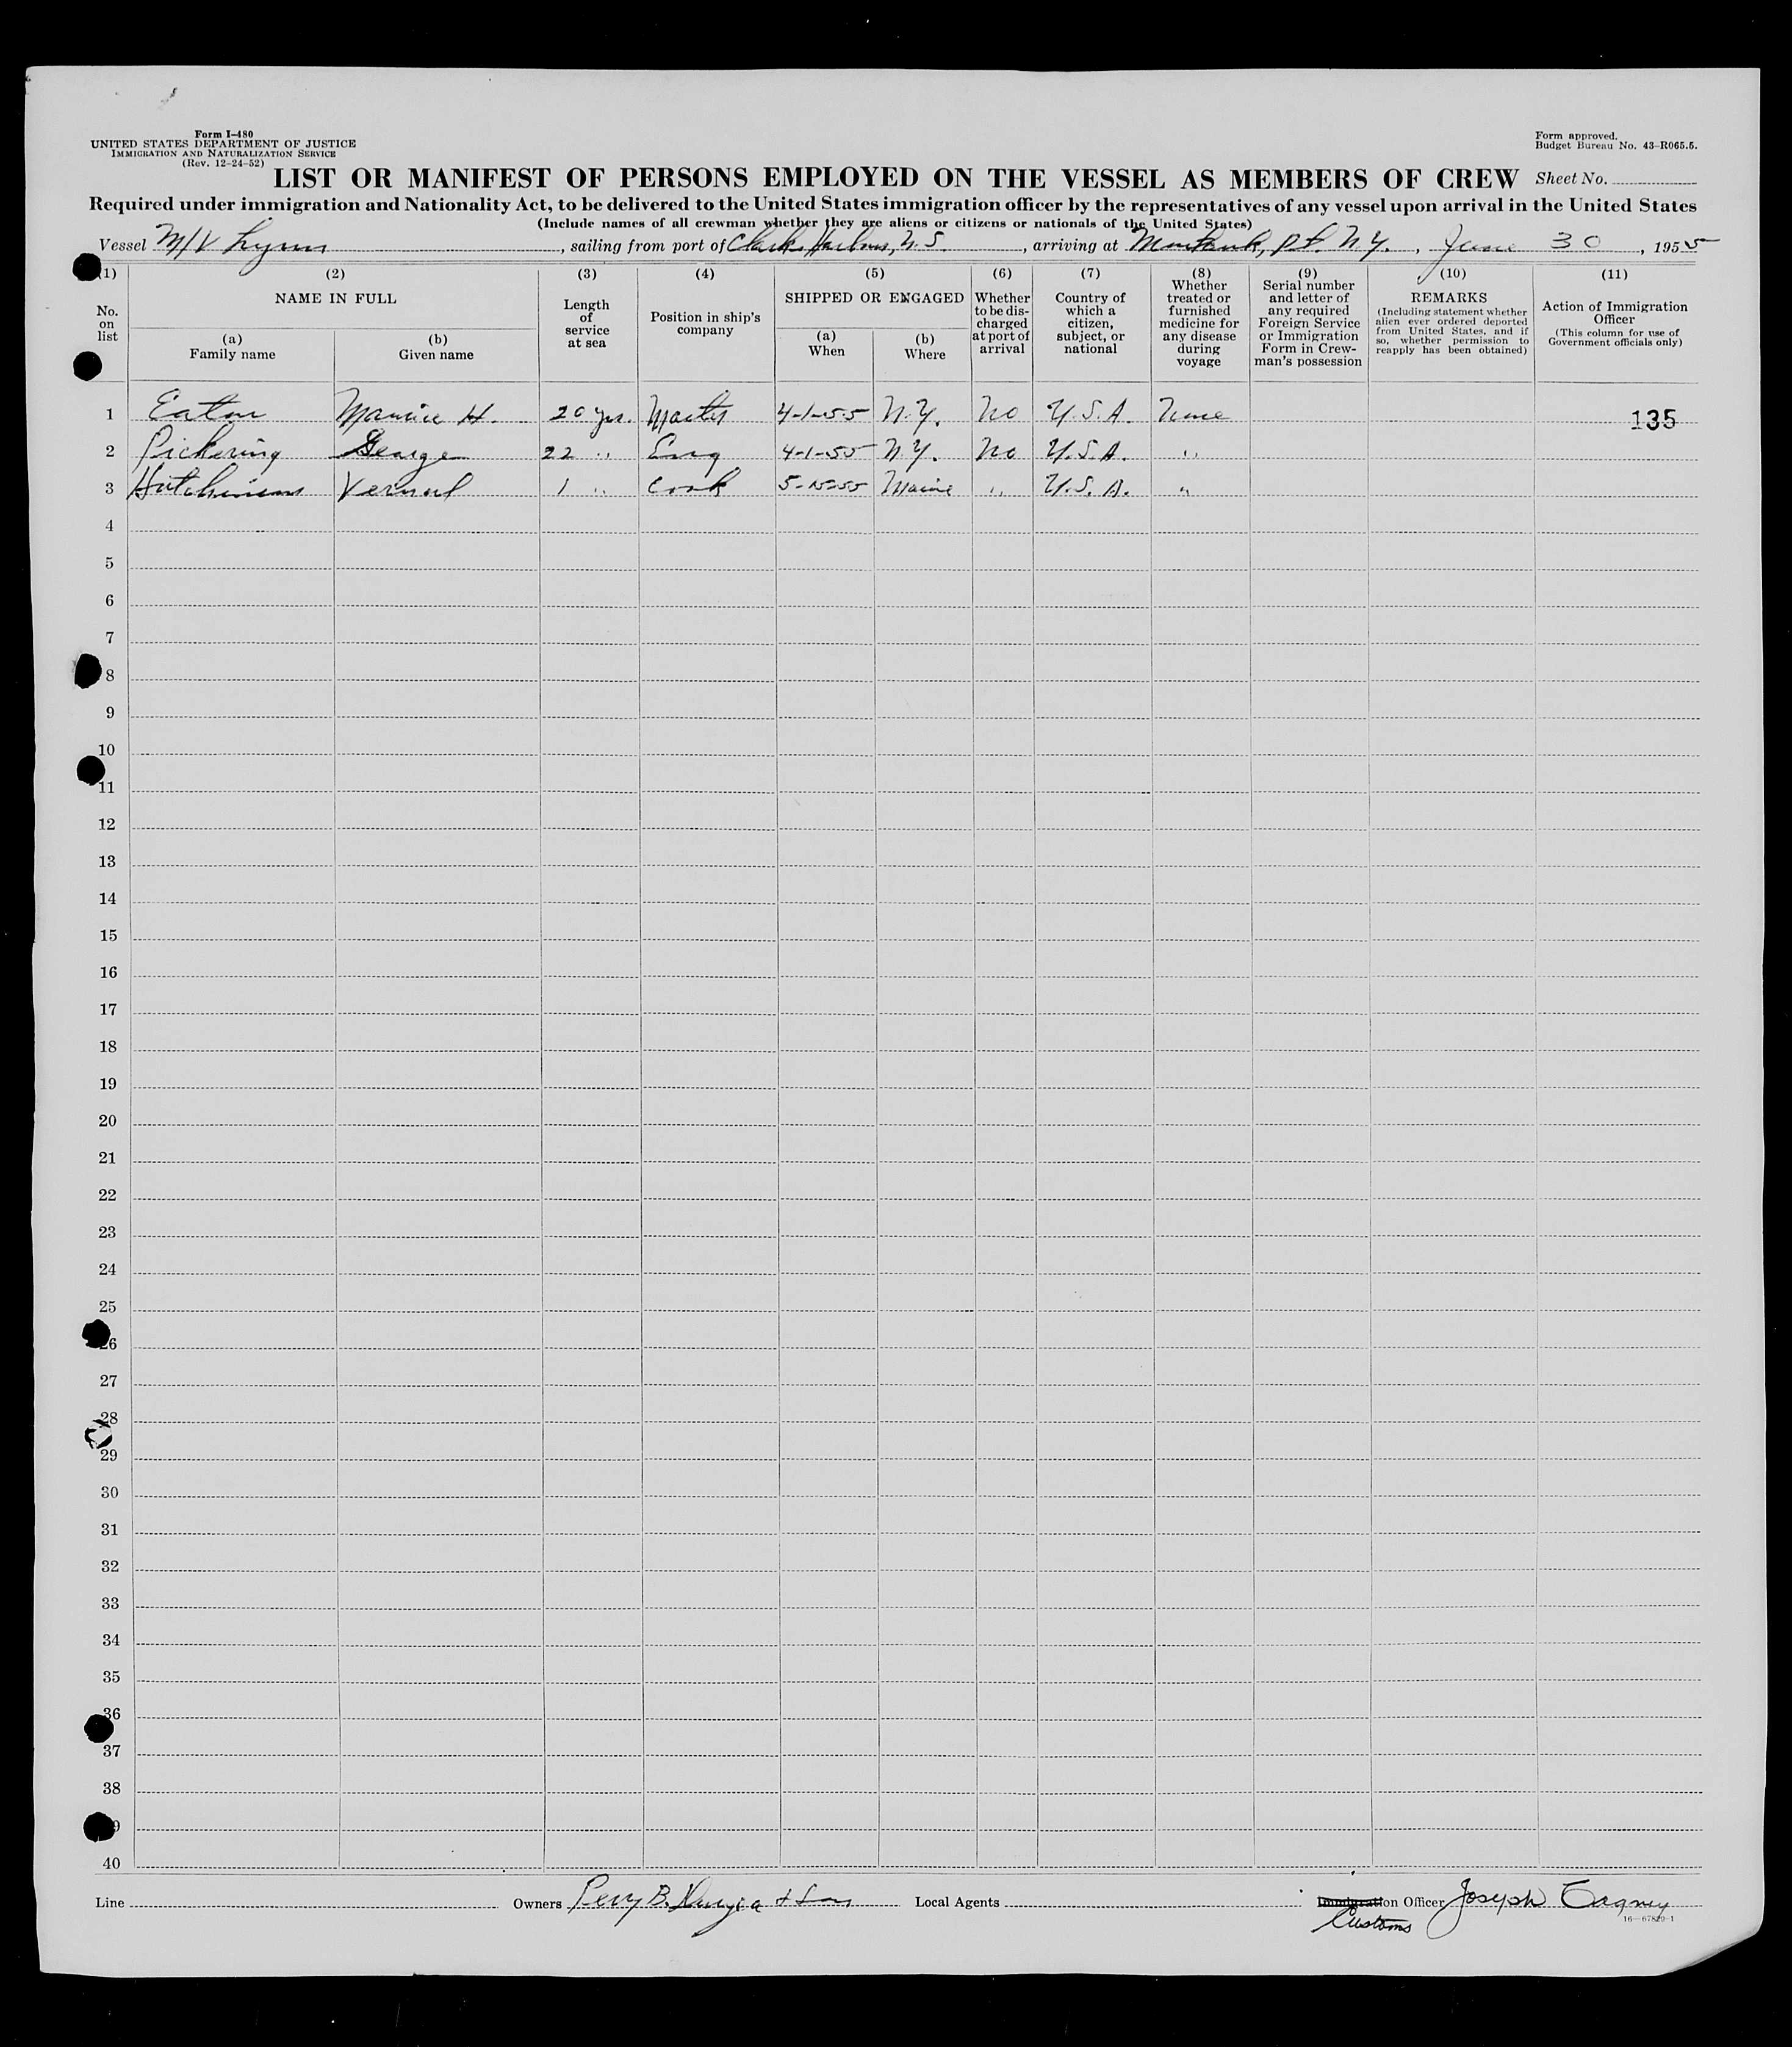 Form I-480
UNITED STATES DEPARTMENT OF JUSTICE
IMMIGRATION AND NATURALIZATION SERVICE
(Rev. 12-24-52)
Form approved.
Budget Bureau No. 43-R065.5.
LIST OR MANIFEST OF PERSONS EMPLOYED ON THE VESSEL AS MEMBERS OF CREW Sheet No.
Required under immigration and Nationality Act, to be delivered to the United States immigration officer by the representatives of any vessel upon arrival in the United States
(Include names of all crewman whether they are aliens or citizens or nationals of the United States)
Vessel M/V Lynn, sailing from port of Clarks Harbour, N.S., arriving at Montauk, Pt. N.Y., June 30, 1955
(1) No. on list
(2) NAME IN FULL
(a) Family name
(b) Given name
(3) Length of service at sea
(4) Position in ship's company
(5) SHIPPED OR ENGAGED
(a) When
(b) Where
(6) Whether to be dis-charged at port of arrival
(7) Country of which a citizen, subject, or national
(8) Whether treated or furnished medicine for any disease during voyage
(9) Serial number and letter of any required Foreign Service or Immigration Form in Crew-man's possession
(10) REMARKS (Including statement whether alien ever ordered deported from United States, and if so, whether permission to reapply has been obtained)
(11) Action of Immigration Officer (This column for use of Government officials only)
1 Eaton Maurice H. 20 yrs. Master 4-1-55 N.Y. No U.S.A. None 135
2 Pickering George 22 " Eng 4-1-55 N.Y. No U.S.A. "
3 Hutchinson Vernal 1 " Cook Maine " U.S.A. "
4
5
6
7
8
9
10
11
12
13
14
15
16
17
18
19
20
21
22
23
24
25
26
27
28
29
30
31
32
33
34
35
36
37
38
39
40
Line Owners Percy B. & Son Local Agents Immigration Officer Joseph
Customs
16-67829-1